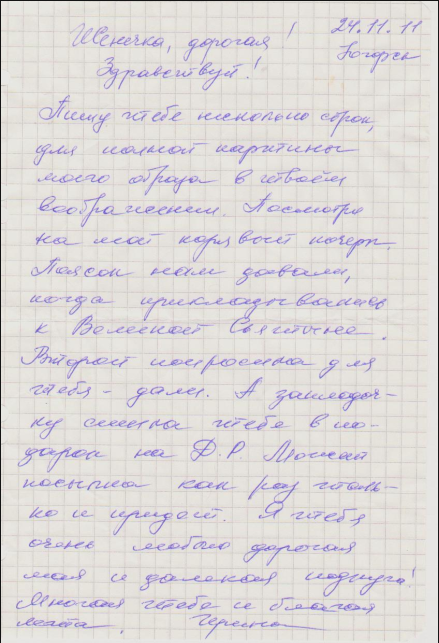 24.11.11
Женечка, дорогая!
Ногорск
Здравствуй!
Пишу тебе несколько строк,
для полной картины
моего образа в твоём
воображении. Посмотри
на мой корявый почерк.
Поясок нам давали,
когда прикладывались
к Великой Святыне.
Второй попросила для
тебя - дали. А закладоч-
ку сшила тебе в по-
дарок на Д.Р. Может
посылка как раз толь-
ко и придёт. Я тебя
очень люблю дорогая
моя и далекая подруга!
Многая тебе и благая
лета.